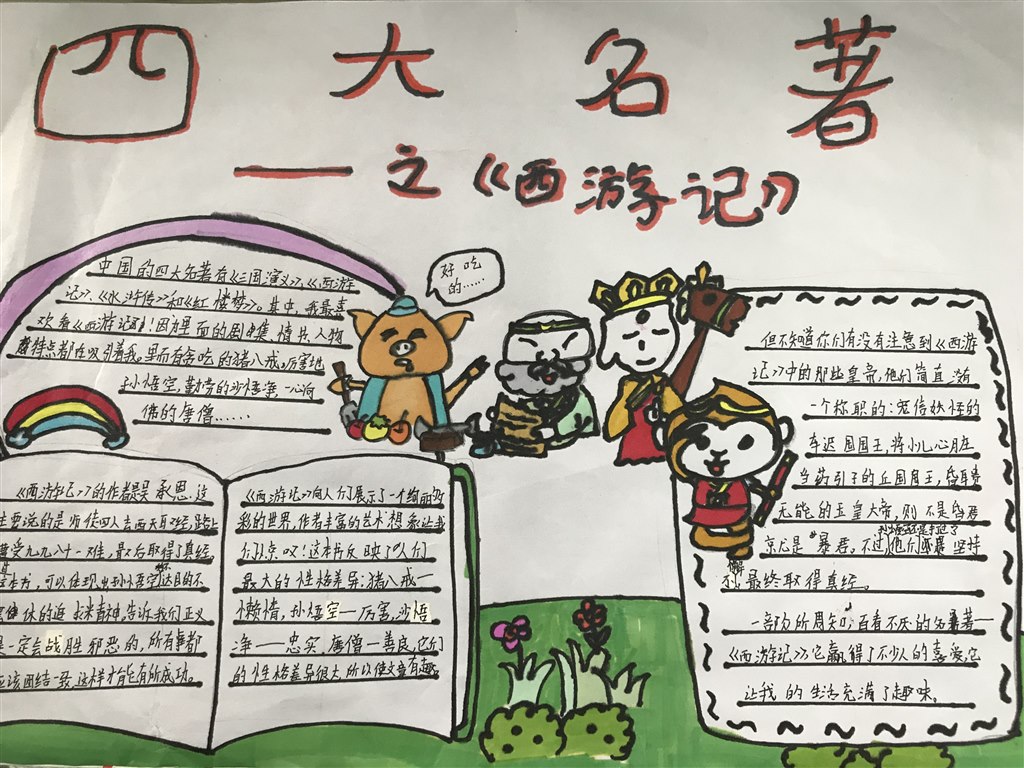 四大名著
——之《西游记》
中国的四大名著有《三国演义》、《西游
记》、《水浒传》和《红楼梦》。其中,我最喜
欢看《西游记》!因为里面的剧集、情节、人物
特点都在吸引着我,里面有贪吃的猪八戒,厉害地
孙悟空,勤劳的沙悟净,一心向
佛的唐僧……
好吃
的……
《西游记》的作者是吴承恩.这
主要说的是师徒四人去西天取经,路上
遭受九九八十一难,最后取得了真经
本书,可以体现出孙悟空达目的不
罢休的追求精神.告诉我们正义
是一定会战胜邪恶的,所有事都
应该团结一致,这样才能有所成功。
《西游记》向人们展示了一个绚丽多
彩的世界,作者丰富的艺术想象让我
们惊叹!这本书反映了人们
最大的性格差异:猪八戒一
懒惰,孙悟空一厉害,沙悟
净一忠实,唐僧一善良,它们
的性格差异很大所以使文章有趣。
但不知道你们有没有注意到《西游
记》中的那些皇帝,他们简直没有
一个称职的:宠信妖怪的
车迟国国王,将小儿心肝
当药引子的丘国国王,昏聩
无能的玉皇大帝,则不是昏君
就是"暴君。不过,他们坚持
不懈最终取得真经。
一部为所周知,百看不厌的名著一
《西游记》它赢得了不少人的喜爱,它
让我的生活充满了趣味。